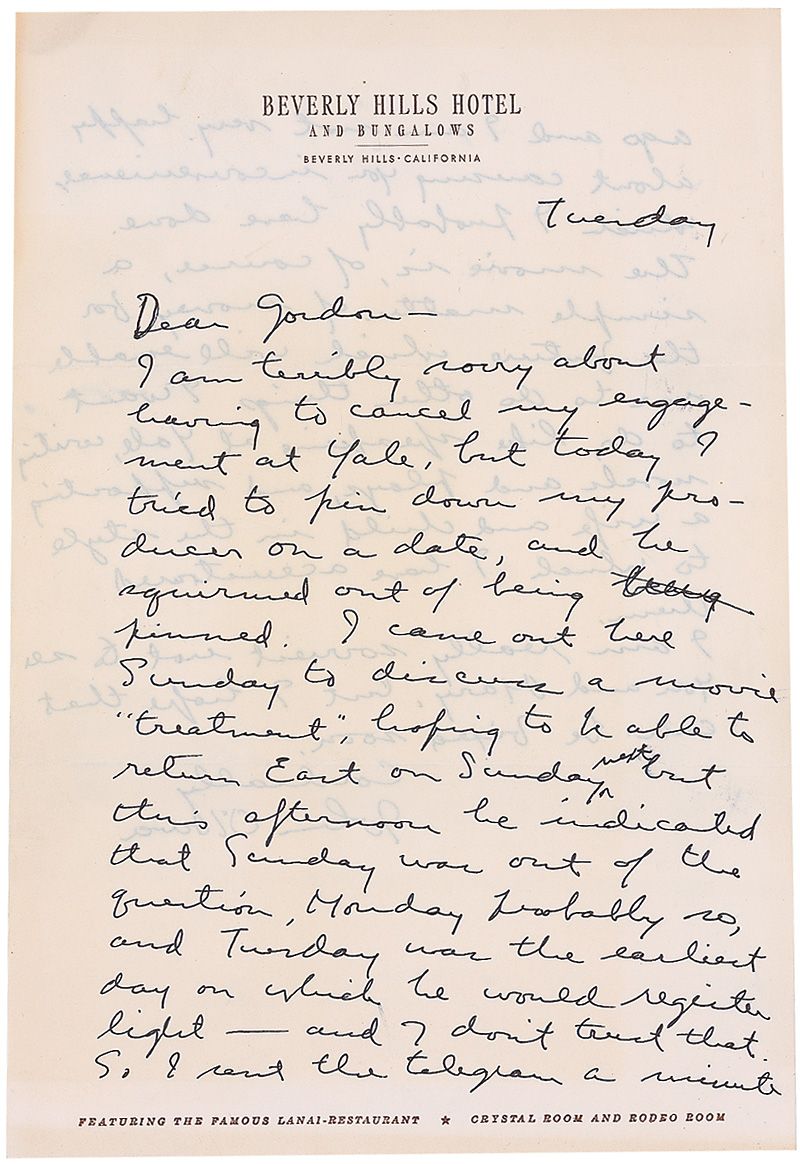 BEVERLY HILLS HOTEL
AND BUNGALOWS
BEVERLY HILLS · CALIFORNIA
Tuesday
Dear Gordon —
I am terribly sorry about
having to cancel my engage-
ment at Yale, but today I
tried to pin down my pro-
ducer on a date, and he
squirmed out of being
pinned. I came out here
Sunday to discuss a movie
"treatment", hoping to be able to
return East on Sunday next, but
this afternoon he indicated
that Sunday was out of the
question, Monday probably so,
and Tuesday was the earliest
day on which he would register
light — and I don't trust that.
So I sent the telegram a minute
FEATURING THE FAMOUS LANAI-RESTAURANT ★ CRYSTAL ROOM AND RODEO ROOM